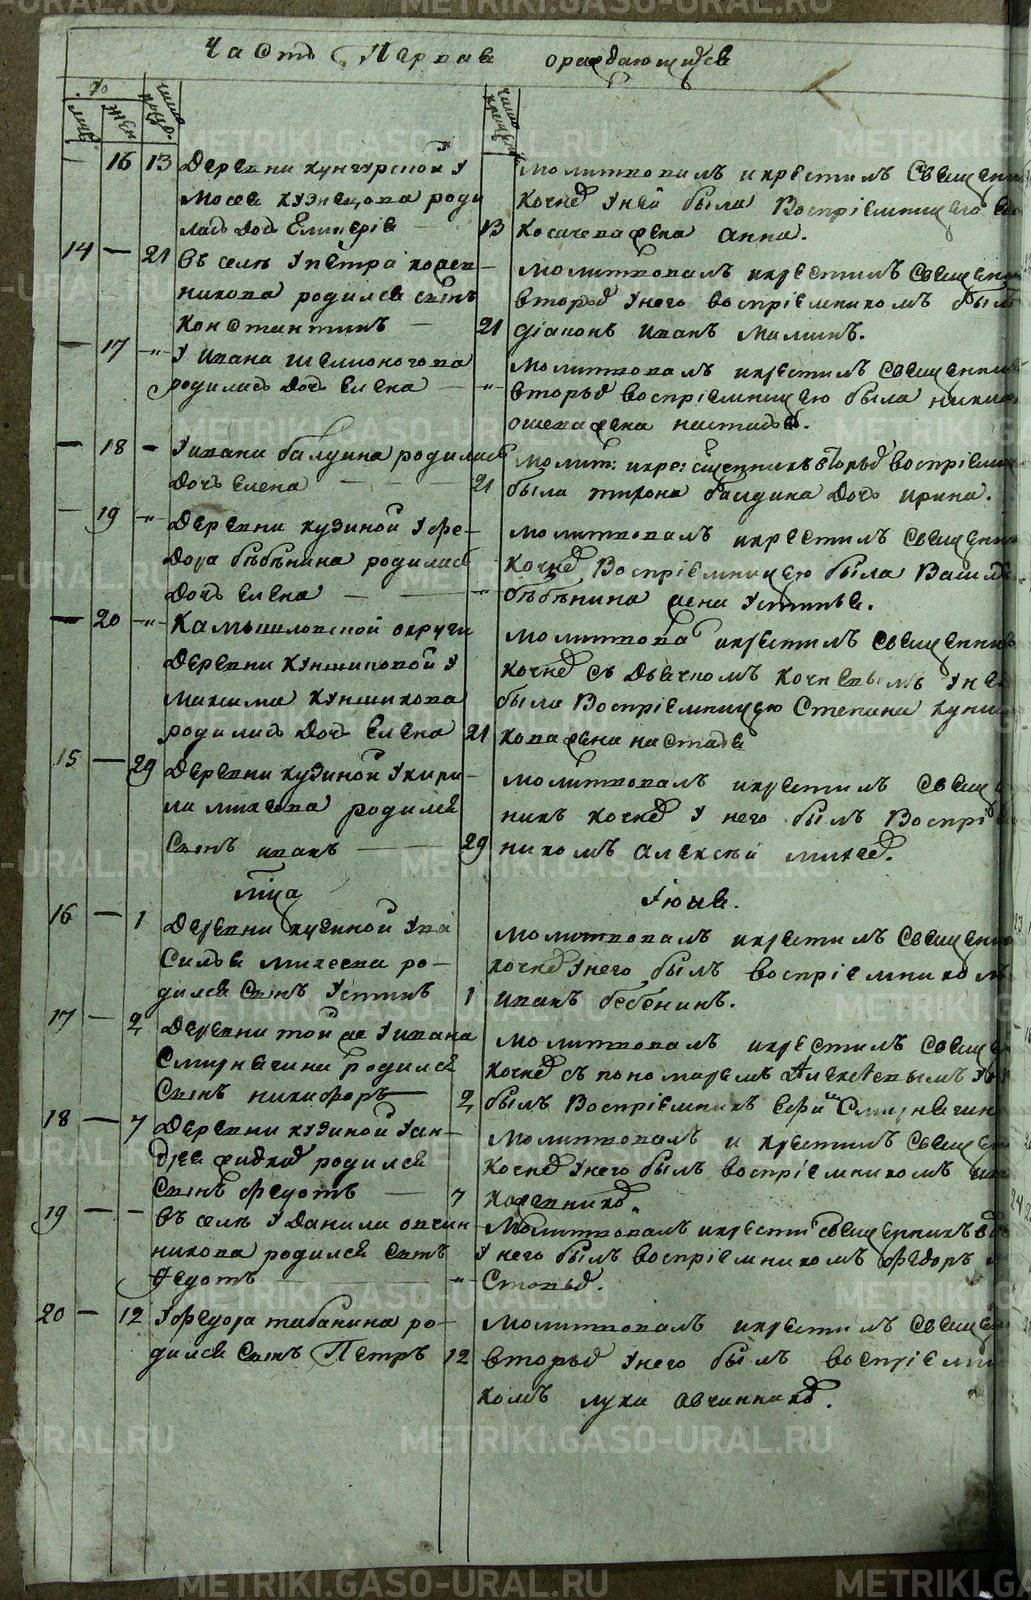 Часть Первая о раждающихся
муж
жен
число рожд.
число крещен.
16 13 Деревни кунгурской у
Мосея кузнецова роди
лась Дочь Гликерiя
молитвовалъ и крестилъ Священ
кочневъ у ней была Воспрiемницею
13 Косачева жена анна.
14 — 21 въ селе у петра кожев-
никова родился сынъ
Константинъ
молитвовалъ и крестилъ Священ
вторыхъ у него воспрiемникомъ былъ
21 дiаконъ иванъ маминъ.
— 17 -"- у ивана
родилась Дочь Елена
молитвовалъ и крестилъ Священник
-"- вторыхъ воспрiемницею была
жена настасья.
— 18 - у ивана балдина родилась
Дочь Елена
молит: и кре: священникъ вторыхъ воспрiем
21 была тихона балдина Дочь ирина.
— 19 -"- Деревни кузиной у Фе-
Дора бѣбѣнина родилась
Дочь Елена
молитвовалъ и крестилъ Священни
кочневъ Воспрiемницею была Василья
-"- бѣбѣнина жена Устинья.
— 20 -"- Камышловской округи
Деревни куншиковой у
Максима куншикова
родилась Дочь Елена
молитвова и крестилъ священник
кочневъ съ Дьячкомъ кочневымъ у не
была Воспрiемницею Степана кунши
21 кова жена настасья
15 — 29 Деревни кузиной у кири-
ла михеева родился
Сынъ иванъ
молитвовалъ и крестилъ Свящ
никъ кочневъ у него былъ Воспрiем
29 никомъ Алексѣй михеевъ.
мца Iюня.
16 — 1 Деревни кузиной у ва
Силья михеева ро-
дился Сынъ Устинъ
молитвовалъ и крестилъ Священн
кочневъ у него былъ воспрiемникомъ
1 иванъ бебенинъ.
17 — 2 Деревни той же у ивана
Смирнягина родился
Сынъ никифоръ
молитвовалъ и крестилъ Свяще
кочневъ съ пономаремъ Алексѣевымъ у
2 былъ Воспрiемникъ Ефи Смирнягин
18 — 7 Деревни кузиной у ан-
дрея родился
Сынъ Федотъ
молитвовалъ и крестилъ Свяще
кочневъ у него былъ воспрiемникомъ
7 кожевниковъ.
19 — - въ селе у Данила овчин
никова родился Сынъ
Федотъ
молитвовалъ и крести священникъ
у него былъ воспрiемникомъ Федоръ
-"-
20 — 12 у федора табанина ро-
дился Сынъ Петръ
молитвовалъ и крестилъ Свяще
12 вторыхъ у него былъ воспрiемни
комъ лука овчинниковъ.
METRIKI.GASO-URAL.RU